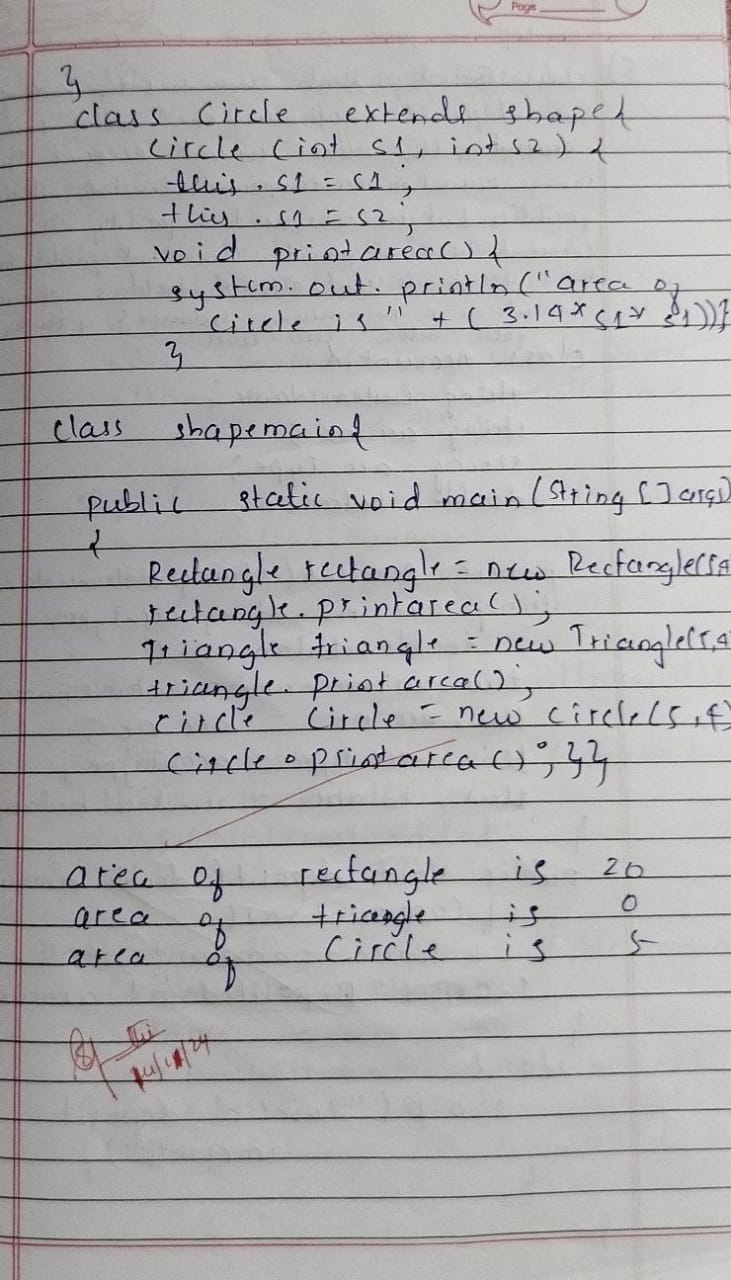 Page
}
class Circle extends shape{
Circle (int s1, int s2) {
this . s1 = s1 ;
this . s1 = s2 ;
void printarea() {
system. out. println ("area of
Circle is" + ( 3.14 * s1 * s1))}
}
class shapemain{
public static void main (String [] args)
{
Rectangle rectangle = new Rectangle(5,4
rectangle. printarea() ;
Triangle triangle = new Triangle(5,4
triangle. print area() ;
circle Circle = new circle(5,4)
Circle . printarea () ; }}
area of rectangle is 20
area of triangle is 0
area of Circle is 5